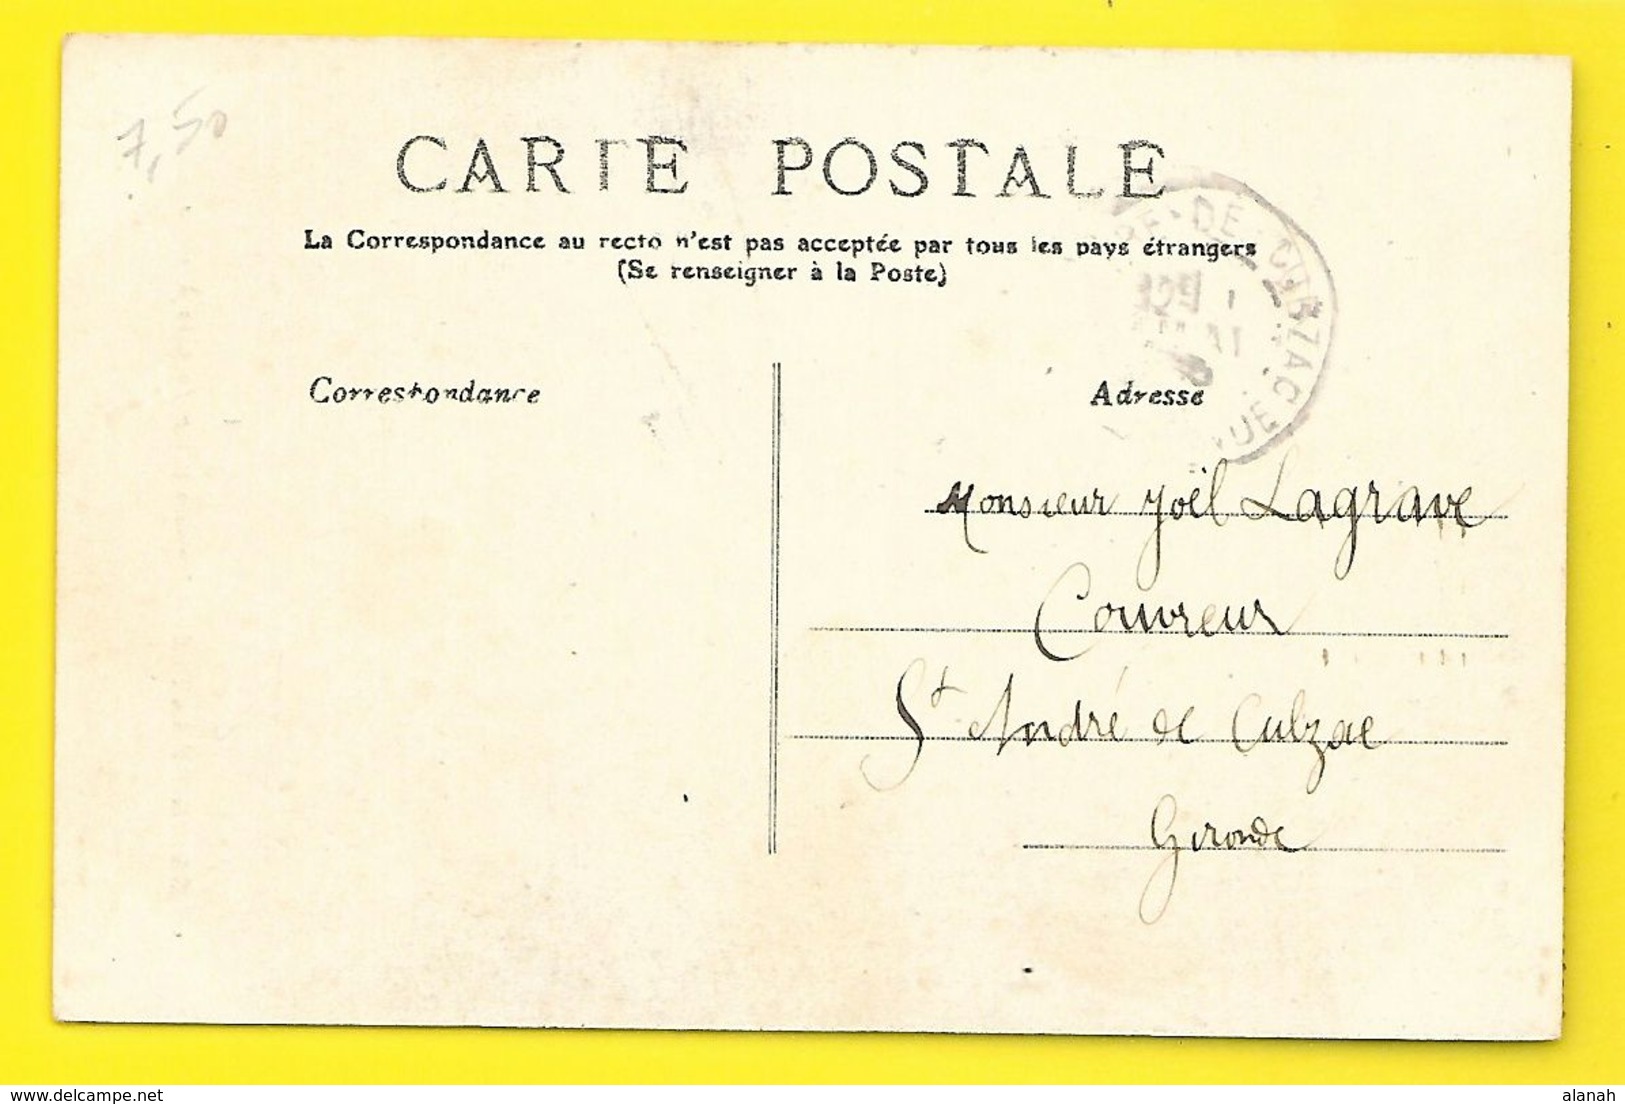 7,50
CARTE POSTALE
La Correspondance au recto n'est pas acceptée par tous les pays étrangers
(Se renseigner à la Poste)
DE-CUBZAC
Correspondance
Adresse
Monsieur Joël Lagrave
Couvreur
St André de Cubzac
Gironde
https://www.delcampe.net
alanah